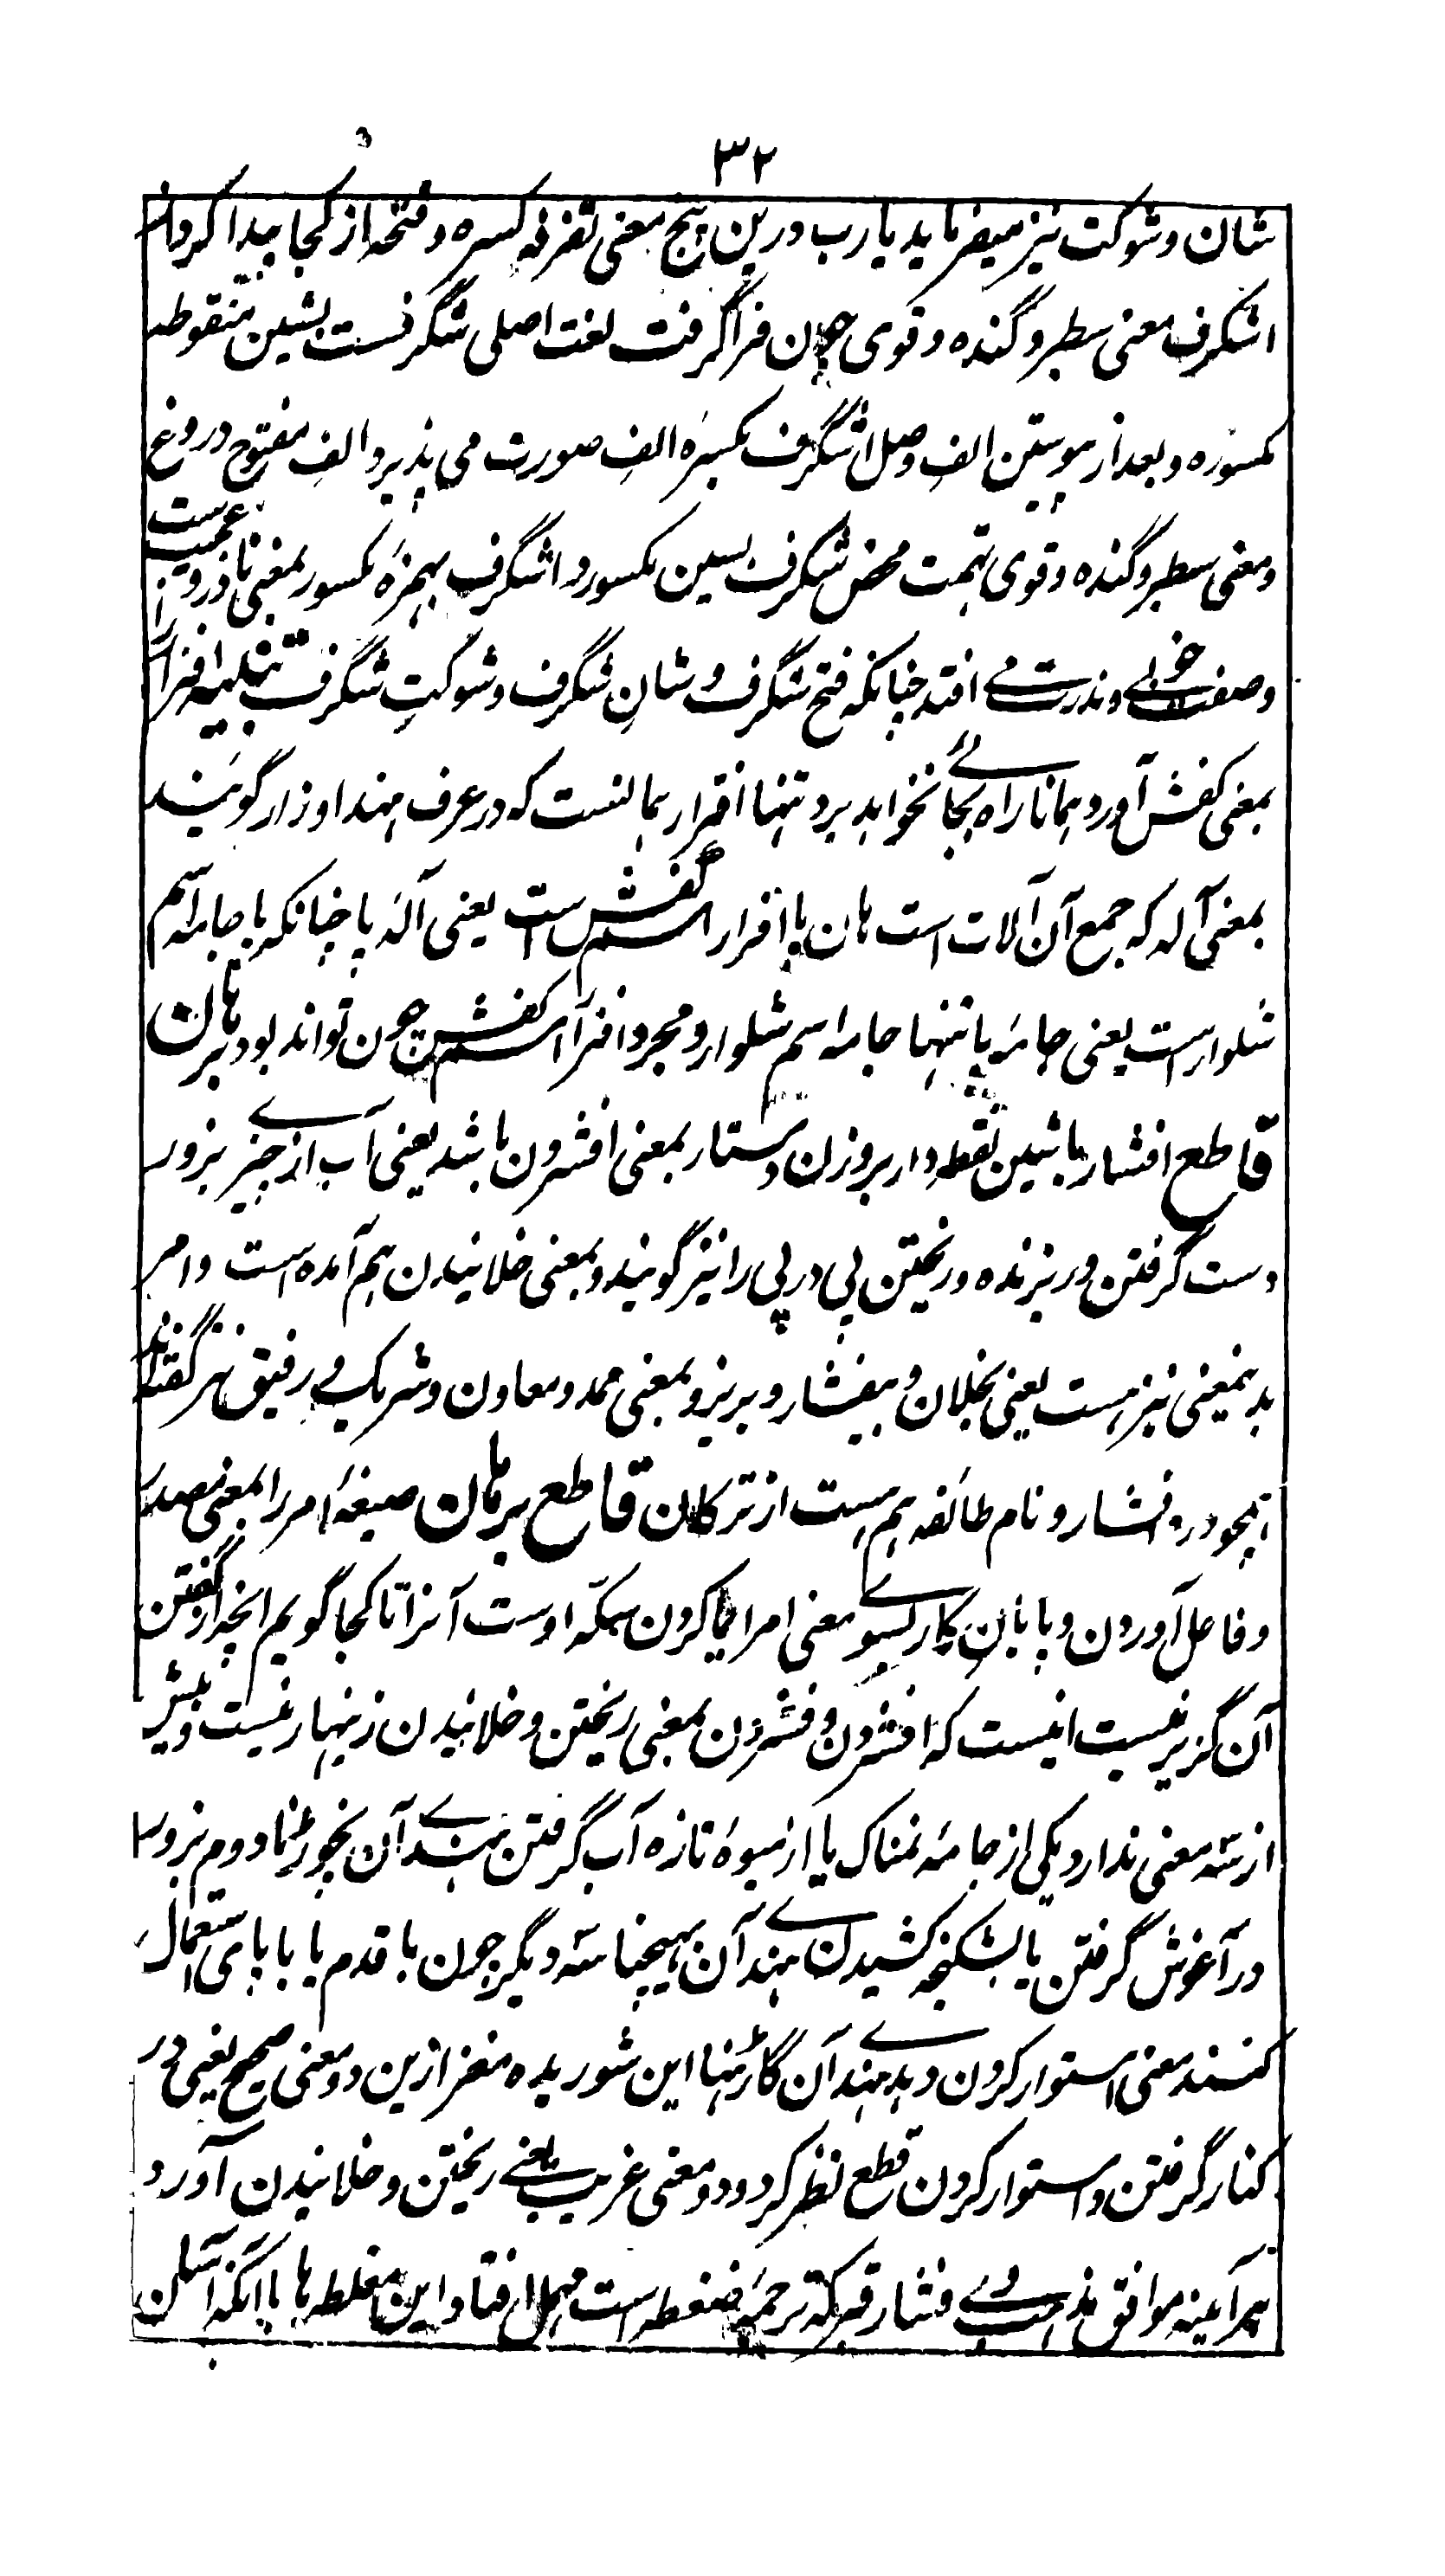 ۳۲
شان و شوکت نیز میفرماید یارب درین پنج معنی تفرقه کسره و فتحه از کجا پیدا کرد و از
اشکرف معنی سطبر و گنده و قوی چون فرا گرفت لغت اصلی شگرفست بشین منقوطه
مکسوره و بعد از پیوستن الف وصل اشگرف بکسرهٔ الف صورت می پذیرد الف مفتوح دروغ
و معنی سطبر و گنده و قوی تهمت محض شگرف بسین مکسور و اشگرف بهمزهٔ مکسور بمعنی نادر و عجیب ست
وصفت خوبی و ندرت می افتد چنانکه فتح شگرف و شان شگرف و شوکت شگرف تنبیه افزار
بمعنی کفش آورد همانا راه بجائے نخواهد برد تنها افزار همانست که در عرف هند اوزار گویند
بمعنی آله که جمع آن آلات است هان پا افزار اسم کفش است یعنی آلهٔ پا چنانکه پاجامه اسم
شلوارست یعنی جامهٔ پا تنها جامه اسم شلوار و مجرد افزار اسم کفش چون تواند بود برهان
قاطع افشار با شین نقطه دار بروزن دستار بمعنی افشردن باشد یعنی آب از چیزے بزور
دست گرفتن و ریزنده و ریختن پی در پی را نیز گویند و بمعنی خلانیدن هم آمده است و امر
بدینمعنی نیز هست یعنی بخلان و بیفشار و بریز و بمعنی ممد و معاون و شریک و رفیق نیز گفته اند
همچو دزد افشار و نام طائفه هم هست از ترکان قاطع برهان صیغهٔ امر را بمعنی مصدر
و فاعل آوردن و پایان کار بسوے معنی امر ایما کردن سکّه اوست آنرا تا کجا گویم انچه از گفتن
آن گزیر نیست اینست که افشردن و فشردن بمعنی ریختن و خلانیدن زینهار نیست و بیش
از سه معنی ندارد یکی از جامهٔ نمناک یا از میوهٔ تازه آب گرفتن هندے آن نچوڑنا دوم بزور
در آغوش گرفتن یا بشکنجه کشیدن هندے آن بهیچنا سه دیگر چون با قدم یا با پای استعمال
کنند معنی استوار کردن دهد هندے آن گاڑنا این شوریده مغز ازین دو معنی صحیح یعنی در
کنار گرفتن و استوار کردن قطع نظر کرد و دو معنی غریب یعنے ریختن و خلانیدن آورد
هر آئینه موافق مذهب وے فشار قبر که ترجمهٔ ضغطه است مهمل افتاد و این مغلطه ها با آنکه آسان